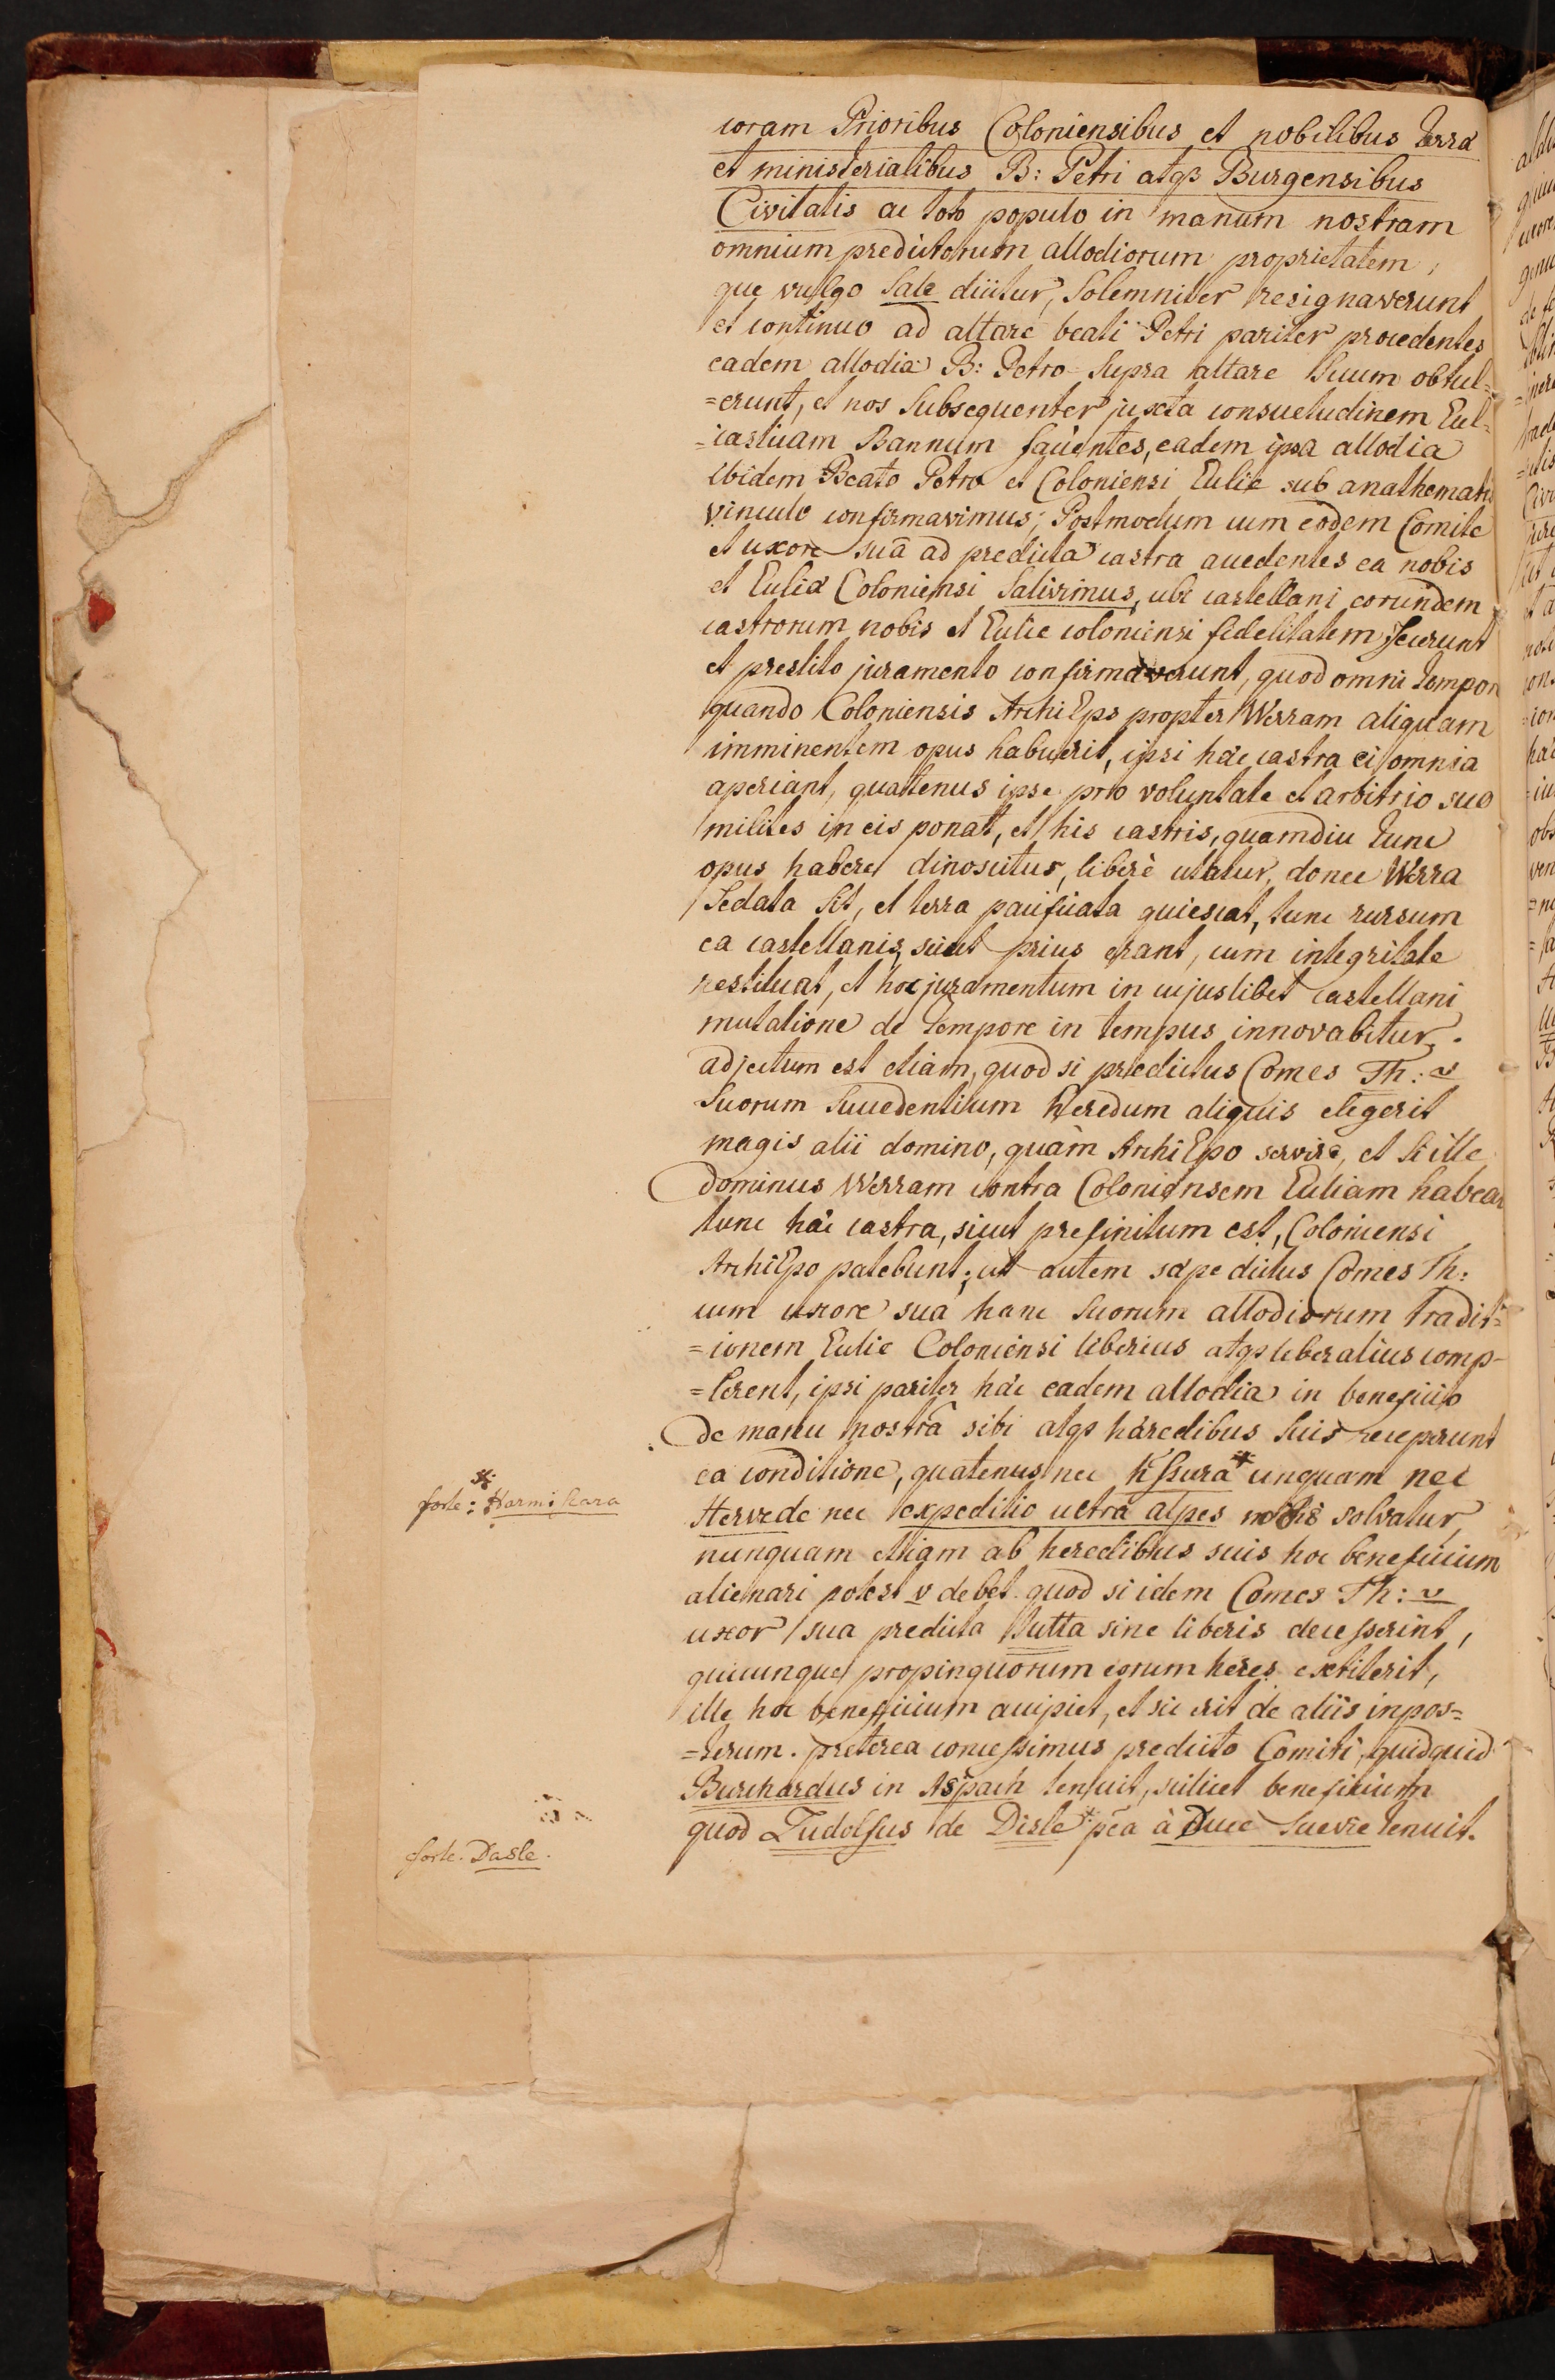 coram Prioribus Coloniensibus et nobilibus terrá
et ministerialibus B: Petri atqз Burgensibus
Civitatis ac toto populo in manum nostram
omnium predictorum allodiorum proprietatem,
que vulgo Sale dicitur, Solemniter resignaverunt
et continuo ad altare beati Petri pariter procedentes
eadem allodia B: Petro Supra altare Suum obtul=
=erunt, et nos Subsequenter juxta consuetudinem Eccl=
=iasticam Bannum facientes, eadem ipsa allodia
ibidem Beato Petro et Coloniensi Ecclie sub anathematis
vinculo confirmavimus; Postmodum cum eodem Comite
et uxore suâ ad predicta castra accedentes ea nobis
et Ecclia Coloniensi Salivimus, ubi castellani eorundem
castrorum nobis et Ecclie coloniensi fidelitatem fecerunt
et prestito juramento confirmaverunt, quod omni tempor
quando Coloniensis ArchiEps propter Werram aliquam
imminentem opus habuerit, ipsi hæc castra ei omnia
aperiant, quatenus ipse pro voluntate et arbitrio suo
milites in eis ponat, et his castris, quamdiu tunc
opus habere dinoscitur, liberè utatur, donec Werra
Sedata Sit, et terra pacificata quiescat, tunc rursum
ea castellanis, sicut prius erant, cum integritate
restituat, et hoc juramentum in cujuslibet castellani
mutatione de tempore in tempus innovabitur.
adjectum est etiam, quod si prædictus Comes Th: v
Suorum Succedentium heredum aliquis elegerit
magis alii domino, quàm ArchiEpo servire, et Si ille
dominus Werram contra Coloniensem Eccliam habeat
tunc hæc castra, sicut prefinitum est, Coloniensi
ArchiEpo patebunt; ut autem sæpe dictus Comes Th:
cum uxore sua hanc Suorum allodiorum tradit=
=ionem Ecclie Coloniensi liberius atqз liberalius comp-
=lerent, ipsi pariter hæc eadem allodia in beneficio
de manu nostrâ sibi atqз hæredibus Suis receperunt
ea conditione, quatenus nec hssura* unquam nec
Hervede nec expeditio ultra alpes nobis solvatur,
nunquam etiam ab heredibus suis hoc beneficium
alienari potest v debet. quod si idem Comes Th: v
uxor sua predicta Jutta sine liberis decesserint,
quicunque propinquorum eorum heres extiterit,
ille hoc beneficium accipiet, et sic erit de aliis inpos=
=terum. preterea concessimus predicto Comiti, quidquid
Burchardus in Aspach tenuit, scilicet beneficium
quod Ludolfus de Disle + pēa à Duce Suevie tenuit.
*
forte: Harmiscara
forte. Dasle.